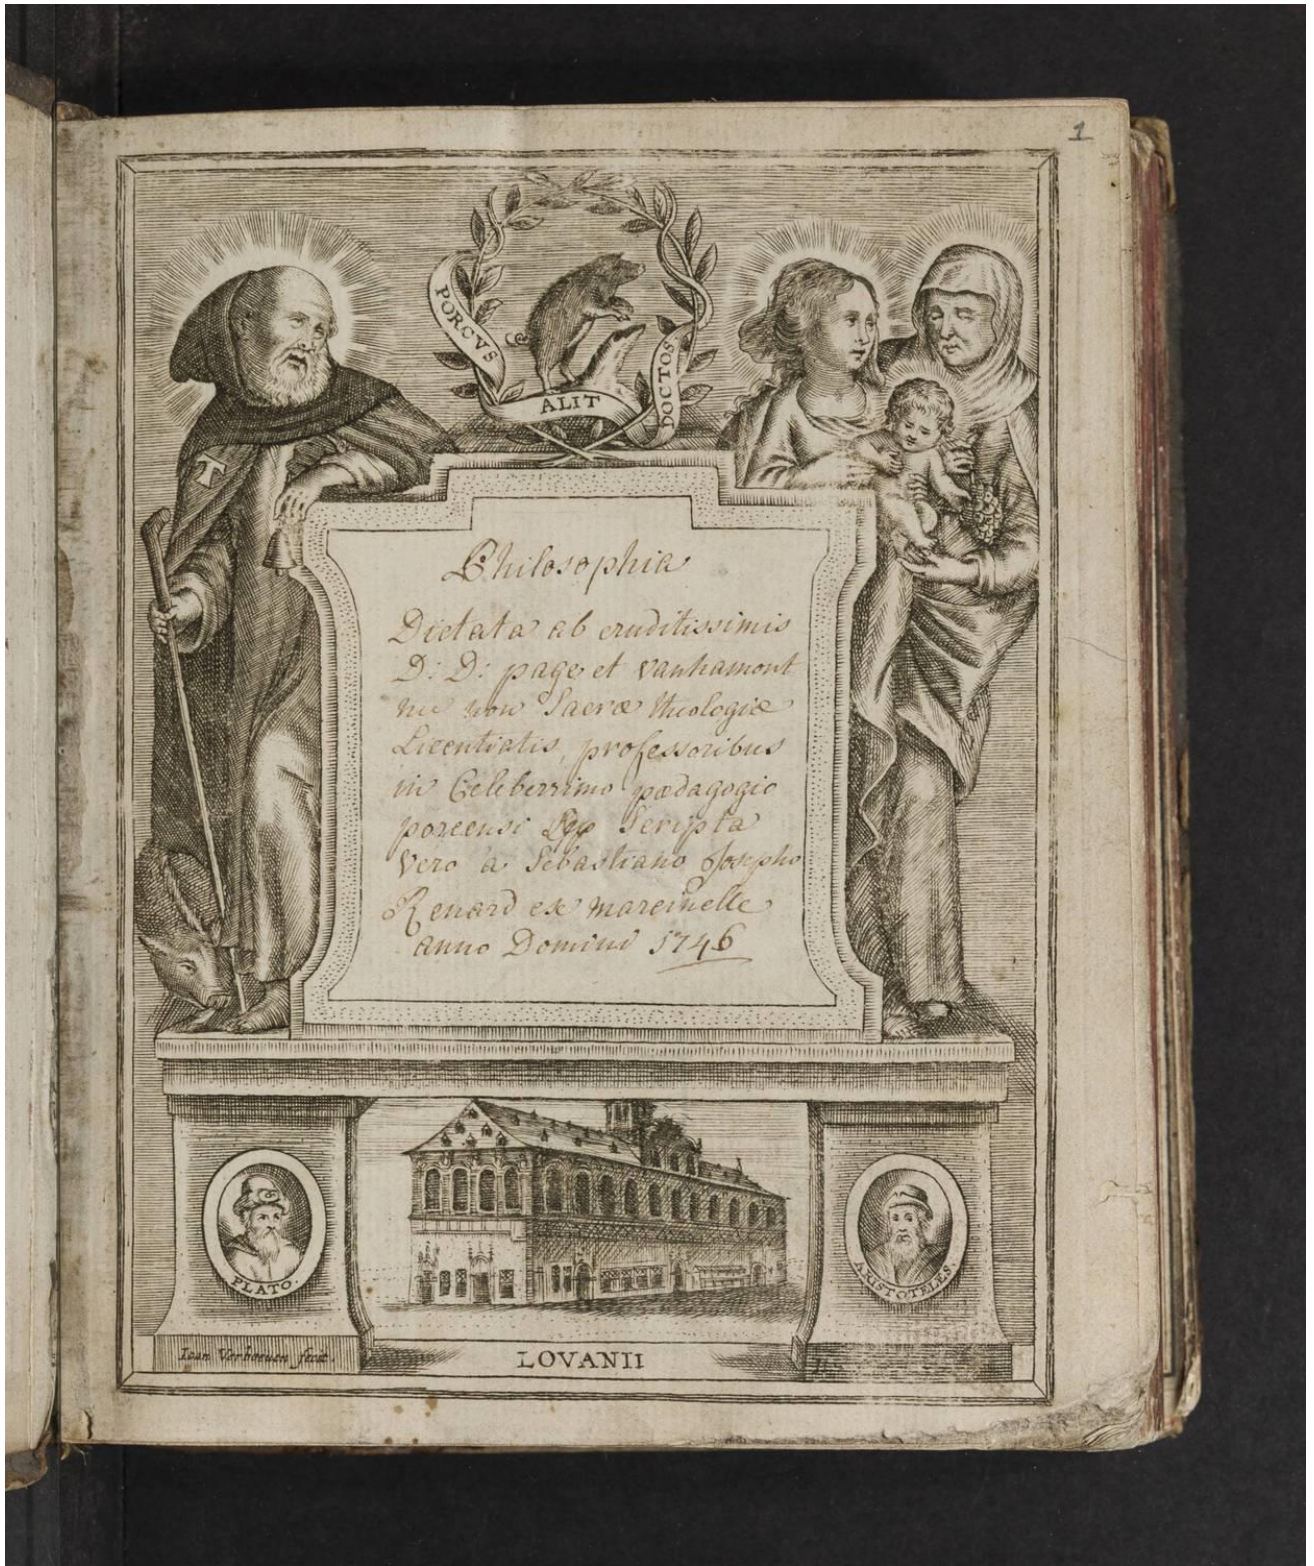 1
PORCVS
ALIT
DOCTOS
Philosophia
Dictata ab eruditissimis
D: D: page et vanhamont
nec non Sacræ theologiæ
Licentiatis, professoribus
in Celeberrimo pædagogio
porcensi Scripta
Vero a Sebastiano Josepho
Renard ex marcinelle
anno Domini 1746
PLATO.
ARISTOTELES.
Ioan Verhoeuen fecit.
LOVANII